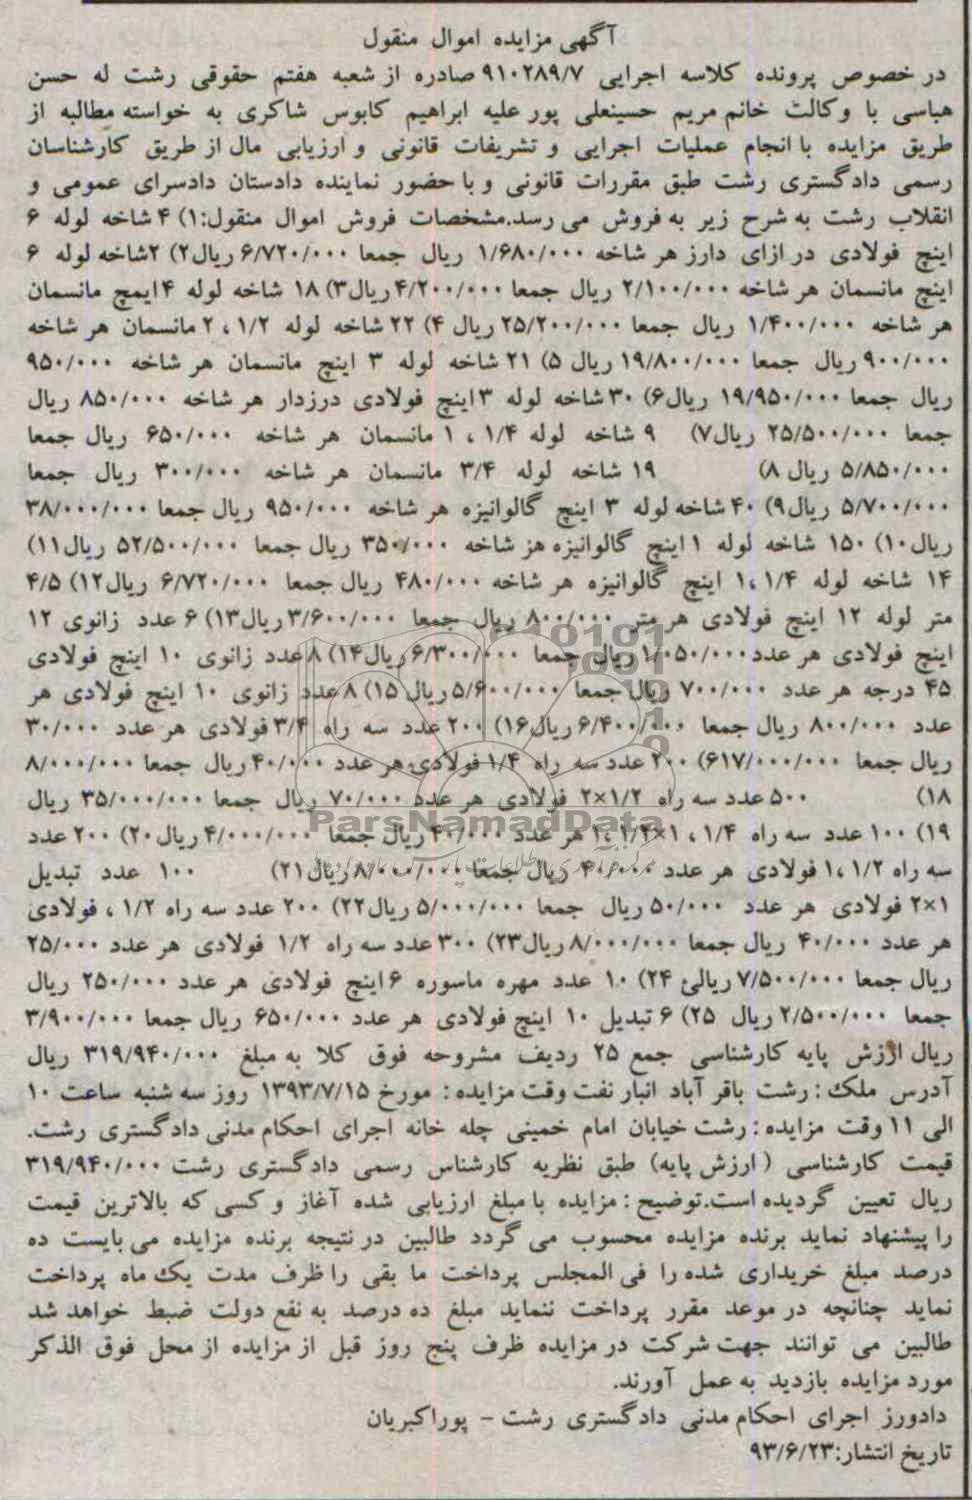 آگهی مزایده اموال منقول
در خصوص پرونده کلاسه اجرایی ۹۱۰۲۸۹/۷ صادره از شعبه هفتم حقوقی رشت له حسن
هباسی با وکالت خانم مریم حسینعلی پور علیه ابراهیم کابوس شاکری به خواسته مطالبه از
طریق مزایده با انجام عملیات اجرایی و تشریفات قانونی و ارزیابی مال از طریق کارشناسان
رسمی دادگستری رشت طبق مقررات قانونی و با حضور نماینده دادستان دادسرای عمومی و
انقلاب رشت به شرح زیر به فروش می رسد.مشخصات فروش اموال منقول:۱) ۴ شاخه لوله ۶
اینچ فولادی در ازای دارز هر شاخه ۱/۶۸۰/۰۰۰ ریال جمعا ۶/۷۲۰/۰۰۰ ریال۲) ۲شاخه لوله ۶
اینچ مانسمان هر شاخه ۲/۱۰۰/۰۰۰ ریال جمعا ۴/۲۰۰/۰۰۰ ریال۳) ۱۸ شاخه لوله ۴ ایمچ مانسمان
هر شاخه ۱/۴۰۰/۰۰۰ ریال جمعا ۲۵/۲۰۰/۰۰۰ ریال ۴) ۲۲ شاخه لوله ۱/۲ ، ۲ مانسمان هر شاخه
۹۰۰/۰۰۰ ریال جمعا ۱۹/۸۰۰/۰۰۰ ریال ۵) ۲۱ شاخه لوله ۳ اینچ مانسمان هر شاخه ۹۵۰/۰۰۰
ریال جمعا ۱۹/۹۵۰/۰۰۰ ریال۶) ۳۰ شاخه لوله ۳ اینچ فولادی درزدار هر شاخه ۸۵۰/۰۰۰ ریال
جمعا ۲۵/۵۰۰/۰۰۰ ریال۷) ۹ شاخه لوله ۱/۴ ، ۱ مانسمان هر شاخه ۶۵۰/۰۰۰ ریال جمعا
۵/۸۵۰/۰۰۰ ریال ۸) ۱۹ شاخه لوله ۳/۴ مانسمان هر شاخه ۳۰۰/۰۰۰ ریال جمعا
۵/۷۰۰/۰۰۰ ریال۹) ۴۰ شاخه لوله ۳ اینچ گالوانیزه هر شاخه ۹۵۰/۰۰۰ ریال جمعا ۳۸/۰۰۰/۰۰۰
ریال۱۰) ۱۵۰ شاخه لوله ۱ اینچ گالوانیزه هز شاخه ۳۵۰/۰۰۰ ریال جمعا ۵۲/۵۰۰/۰۰۰ ریال۱۱)
۱۴ شاخه لوله ۱/۴ ،۱ اینچ گالوانیزه هر شاخه ۴۸۰/۰۰۰ ریال جمعا ۶/۷۲۰/۰۰۰ ریال۱۲) ۴/۵
متر لوله ۱۲ اینچ فولادی هر متر ۸۰۰/۰۰۰ ریال جمعا ۳/۶۰۰/۰۰۰ ریال۱۳) ۶ عدد زانوی ۱۲
اینچ فولادی هر عدد ۱/۰۵۰/۰۰۰ ریال جمعا ۶/۳۰۰/۰۰۰ ریال۱۴) ۸ عدد زانوی ۱۰ اینچ فولادی
۴۵ درجه هر عدد ۷۰۰/۰۰۰ ریال جمعا ۵/۶۰۰/۰۰۰ ریال ۱۵) ۸ عدد زانوی ۱۰ اینچ فولادی هر
عدد ۸۰۰/۰۰۰ ریال جمعا ۶/۴۰۰/۰۰۰ ریال۱۶) ۲۰۰ عدد سه راه ۳/۴ فولادی هر عدد ۳۰/۰۰۰
ریال جمعا ۶۱۷/۰۰۰/۰۰۰) ۲۰۰ عدد سه راه ۱/۴ فولادی هر عدد ۴۰/۰۰۰ ریال جمعا ۸/۰۰۰/۰۰۰
۱۸) ۵۰۰ عدد سه راه ۱/۲×۲ فولادی هر عدد ۷۰/۰۰۰ ریال جمعا ۳۵/۰۰۰/۰۰۰ ریال
۱۹) ۱۰۰ عدد سه راه ۱/۴ ، ۱×۱/۲ ،۱ هر عدد ۴۰/۰۰۰ ریال جمعا ۴/۰۰۰/۰۰۰ ریال۲۰) ۲۰۰ عدد
سه راه ۱/۲ ،۱ فولادی هر عدد ۴۰/۰۰۰ ریال جمعا ۸/۰۰۰/۰۰۰ ریال۲۱) ۱۰۰ عدد تبدیل
۱×۲ فولادی هر عدد ۵۰/۰۰۰ ریال جمعا ۵/۰۰۰/۰۰۰ ریال۲۲) ۲۰۰ عدد سه راه ۱/۲ ، فولادی
هر عدد ۴۰/۰۰۰ ریال جمعا ۸/۰۰۰/۰۰۰ ریال۲۳) ۳۰۰ عدد سه راه ۱/۲ فولادی هر عدد ۲۵/۰۰۰
ریال جمعا ۷/۵۰۰/۰۰۰ ریالئ ۲۴) ۱۰ عدد مهره ماسوره ۶ اینچ فولادی هر عدد ۲۵۰/۰۰۰ ریال
جمعا ۲/۵۰۰/۰۰۰ ریال ۲۵) ۶ تبدیل ۱۰ اینچ فولادی هر عدد ۶۵۰/۰۰۰ ریال جمعا ۳/۹۰۰/۰۰۰
ریال ارزش پایه کارشناسی جمع ۲۵ ردیف مشروحه فوق کلا به مبلغ ۳۱۹/۹۴۰/۰۰۰ ریال
آدرس ملک : رشت باقر آباد انبار نفت وقت مزایده : مورخ ۱۳۹۳/۷/۱۵ روز سه شنبه ساعت ۱۰
الی ۱۱ وقت مزایده : رشت خیابان امام خمینی چله خانه اجرای احکام مدنی دادگستری رشت.
قیمت کارشناسی ( ارزش پایه) طبق نظریه کارشناس رسمی دادگستری رشت ۳۱۹/۹۴۰/۰۰۰
ریال تعیین گردیده است.توضیح : مزایده با مبلغ ارزیابی شده آغاز و کسی که بالاترین قیمت
را پیشنهاد نماید برنده مزایده محسوب می گردد طالبین در نتیجه برنده مزایده می بایست ده
درصد مبلغ خریداری شده را فی المجلس پرداخت ما بقی را ظرف مدت یک ماه پرداخت
نماید چنانچه در موعد مقرر پرداخت ننماید مبلغ ده درصد به نفع دولت ضبط خواهد شد
طالبین می توانند جهت شرکت در مزایده ظرف پنج روز قبل از مزایده از محل فوق الذکر
مورد مزایده بازدید به عمل آورند.
دادورز اجرای احکام مدنی دادگستری رشت - پوراکبریان
تاریخ انتشار:۹۳/۶/۲۳
ParsNamadData